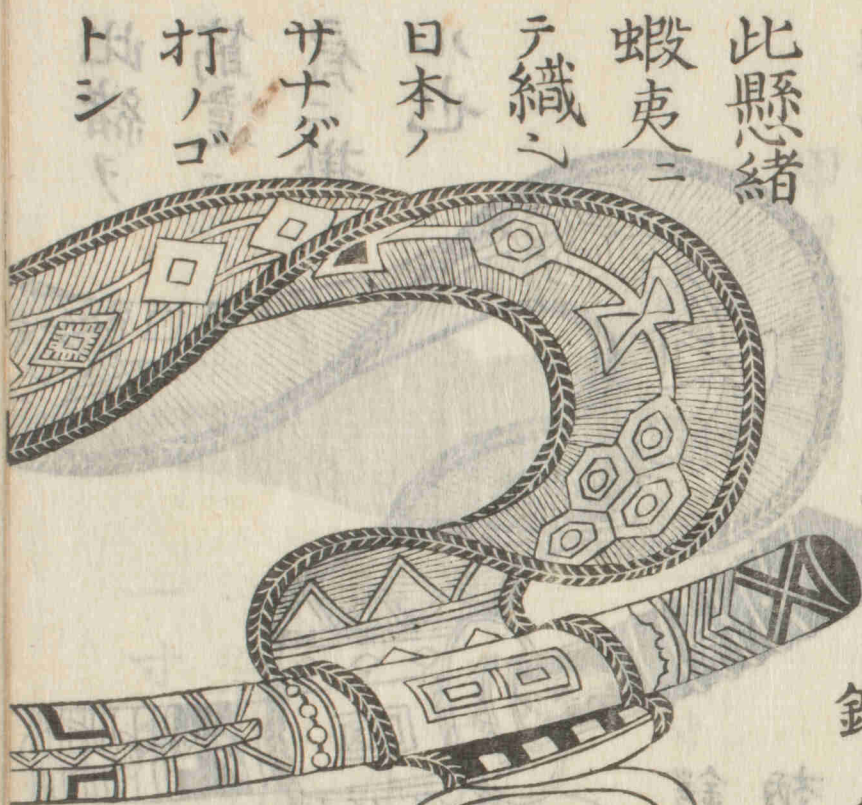 此懸緒
蝦夷ニ
テ織ル
日本ノ
サナダ
打ノゴ
トシ